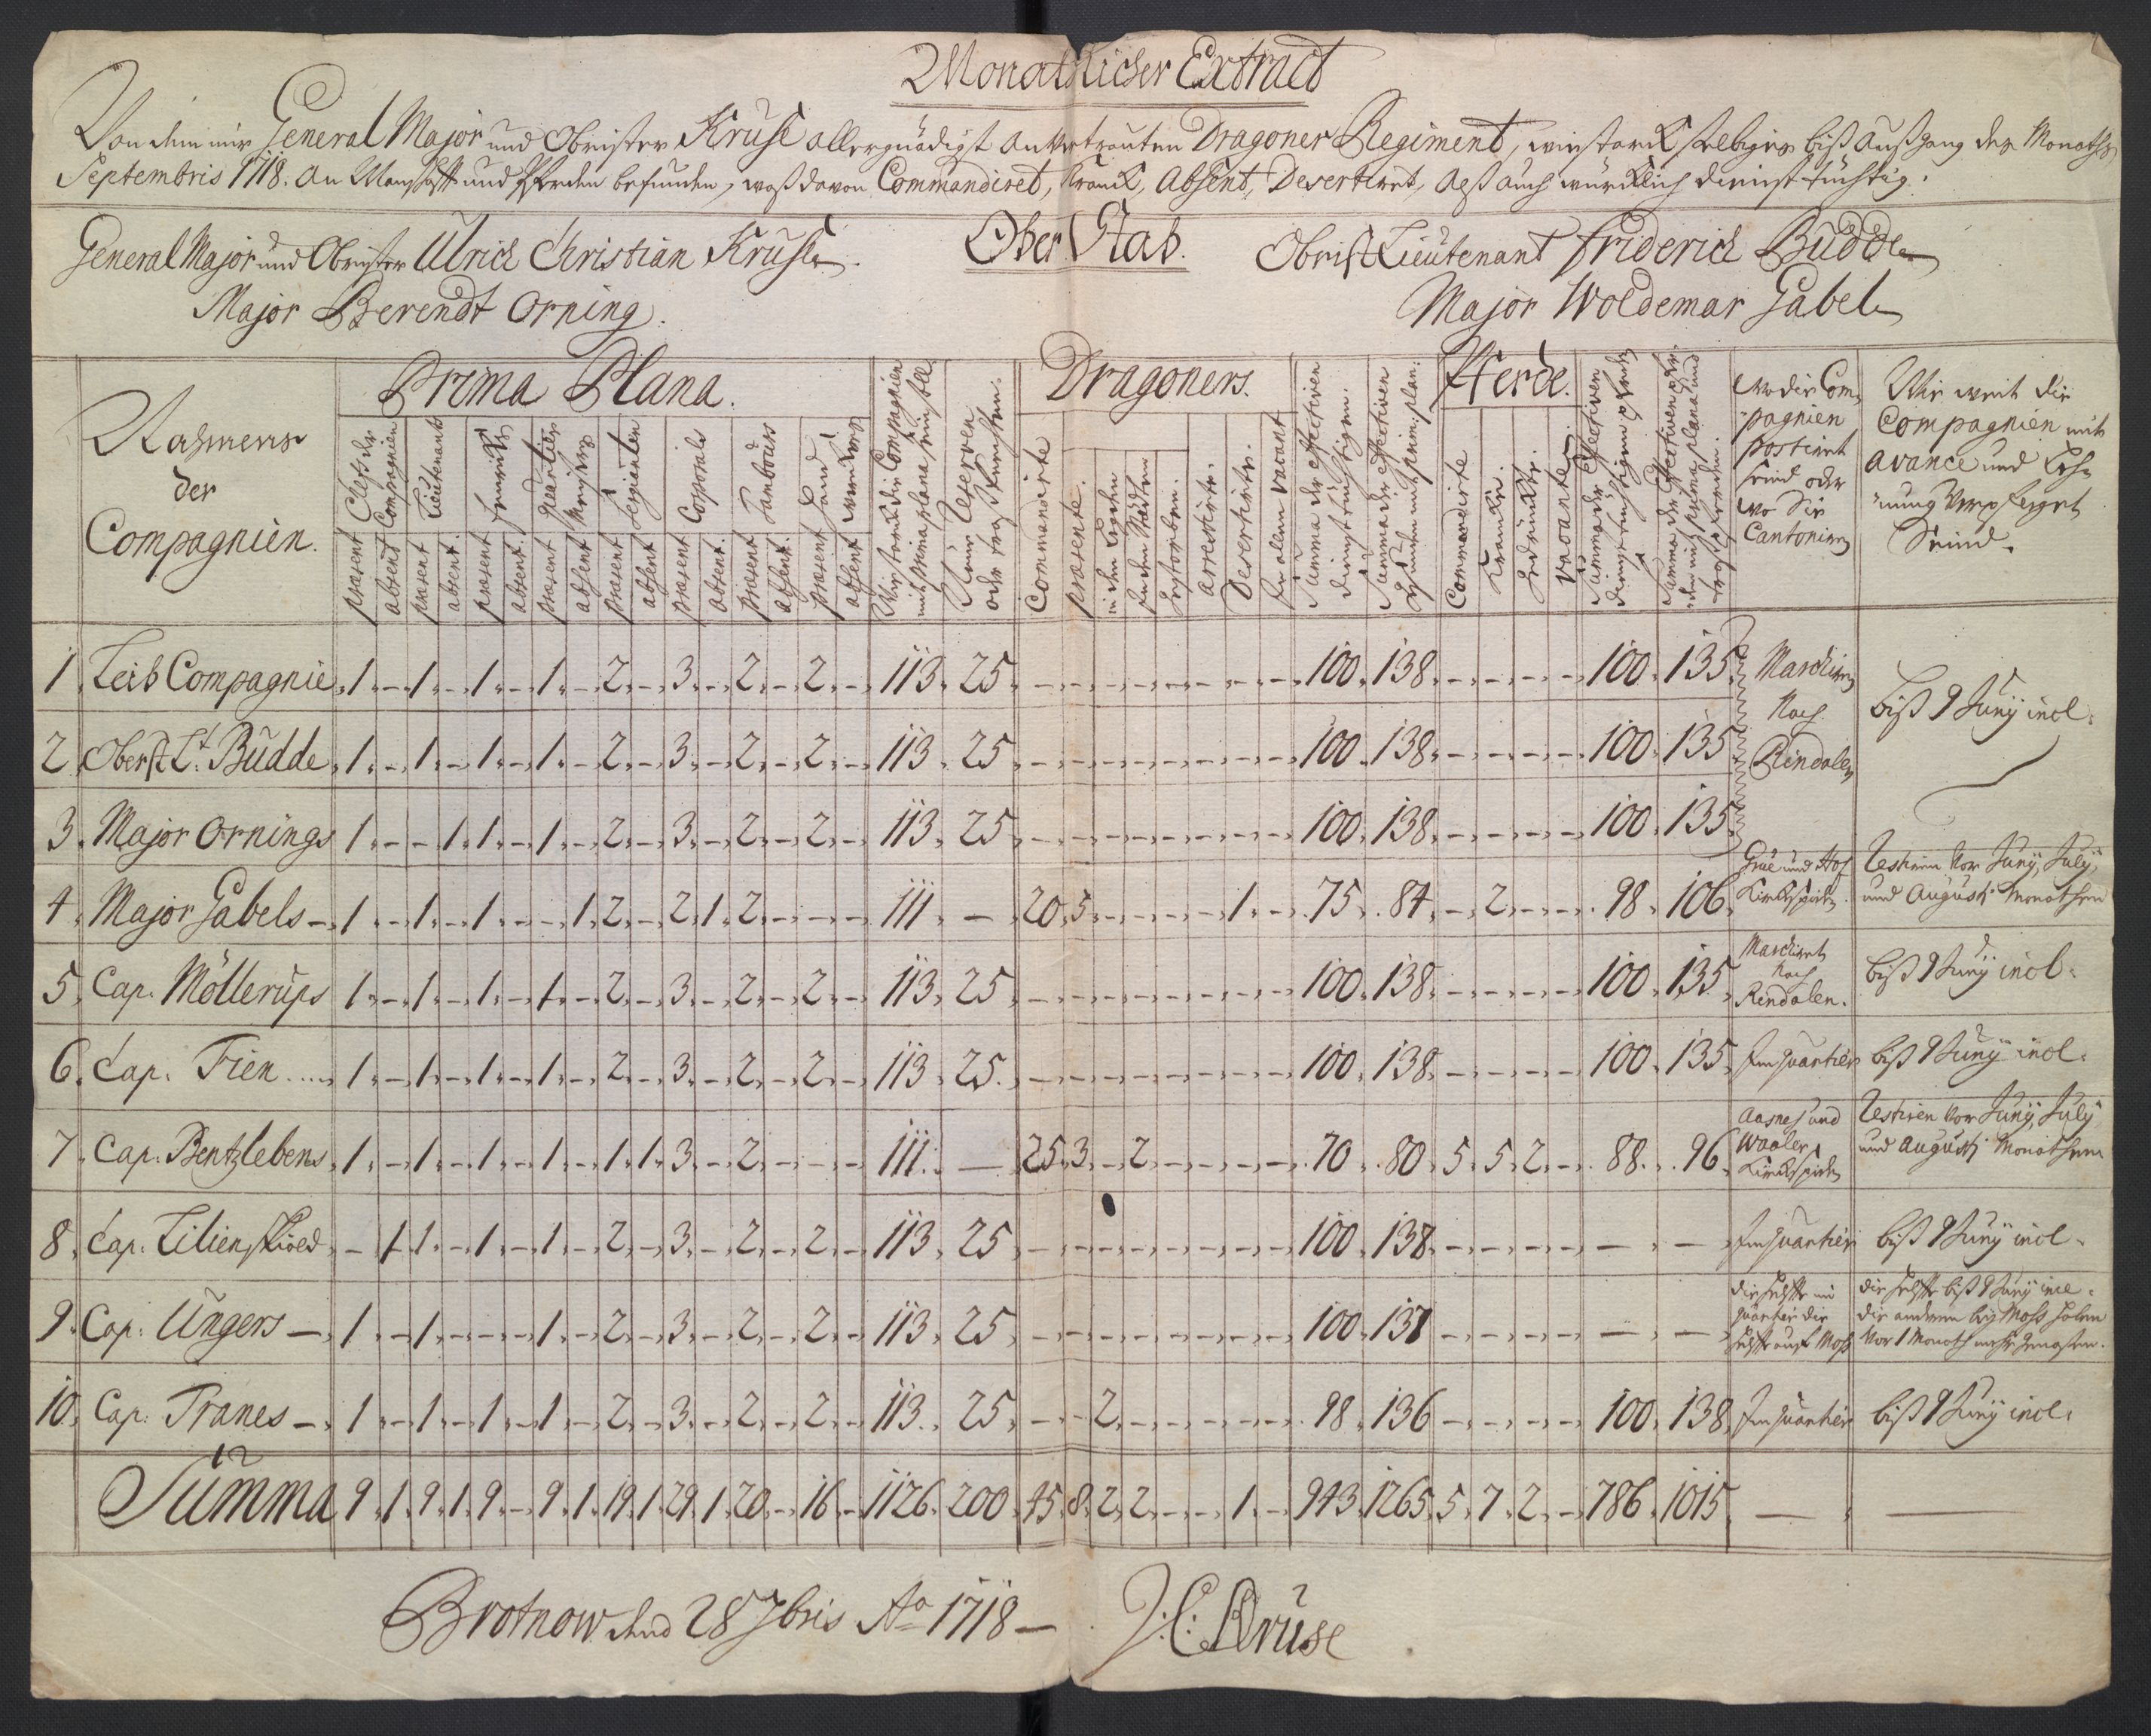 Monatlicher Extract
Von dem mir General Major und Obrister Kruse allergnädigst anvertrauten Dragoner Regiment, wie starck selbiges biß Außgang des Monaths
Septembris 1718. an Manschafft und Pferden befunden, waß davon Commandiret, Kranck, Absent, Deserteret, Alß auch würcklich dienst tüchtig.
Ober Stab.
General Major und Obrister Ulrich Christian Kruse. Obrist Lieutenant Friderich Budde
Major Berendt Orning. Major Woldemar Gabel
Nahmens der Compagnien.
Prima Plana.
Chefs der Compagnien
Lieutenants
Fenrichs
Quartier Meisters
Sergianten
Corporals
Tambours
present absent present absent. present absent. present absent present absent present absent. present absent. present absent
Dragoners.
Commandirte
presente.
in den Städten
gestorben.
arrestirte.
Desertirte.
Summa der effectiven dienst tüchtigen.
Pferde.
Commandirte
Krancke.
Gedruckte.
vacante.
Summa der Effectiven dienst tüchtigen Pferde
wo die Compagnien postiert seind oder wo Sie Cantoniren
Wie weit die Compagnien mit avance und Lehnung verpfleget Seind.
1. Leib Compagnie. 1. – 1. – 1. – 1. – 2. – 3. – 2. – 2. – 113. 25. – – – – – – – – 100. 138. – – – – 100. 135. Marchiren Nach Rindalen biß 9 Junÿ incl.
2. Oberst Lt. Budde. 1. – 1. – 1. – 1. – 2. – 3. – 2. – 2. – 113. 25. – – – – – – – – 100. 138. – – – – 100. 135
3. Major Ornings 1. – – 1. 1. – 1. – 2. – 3. – 2. – 2. – 113. 25. – – – – – – – – 100. 138. – – – – 100. 135.
4. Major Gabels – 1. – 1. – 1. – – 1. 2. – 2. 1. 2. – – – 111. – 20. 5. – – – – 1. – 75. 84. – 2. – – 98. 106. Grue und Hof Kirckspielen. Restiren vor Junÿ, Julÿ, und Augusti Monathen
5. Cap. Möllerups 1. – 1. – 1. – 1. – 2. – 3. – 2. – 2. – 113. 25. – – – – – – – – 100. 138. – – – – 100. 135. Marchiret Nach Rindalen. biß 9 Junÿ incl.
6. Cap. Fien .... 1. – 1. – 1. – 1. – 2. – 3. – 2. – 2. – 113. 25. – – – – – – – – 100. 138. – – – – 100. 135. Im Quartier biß 9 Junÿ incl.
7. Cap. Bentzlebens. 1. – 1. – 1. – 1. – 1. 1. 3. – 2. – – – 111. – 25. 3. – 2. – – – – 70. 80. 5. 5. 2. – 88. 96. Aasnes und Waaler Kirckspielen Restiren vor Junÿ, Julÿ und Augusti Monathen
8. Cap. Lilienskiold – 1 1. – 1. – 1. – 2. – 3. – 2. – 2. – 113. 25. – – – – – – – – 100. 138. – – – – – – Im Quartier biß 9 Junÿ incl.
9. Cap. Ungers – 1. – 1. – – – 1. – 2. – 3. – 2. – 2. – 113. 25. – – – – – – – – 100. 137 – – – – – – die helffte im Quartier die helffte auf Moß die helffte biß 9 Junÿ incl. die anderen bey Moss haben vor 1 Monath mehr genossen.
10. Cap. Tranes – 1. – 1. – 1. – 1. – 2. – 3. – 2. – 2. – 113. 25. – – 2. – – – – – 98. 136 – – – – 100. 138. Im Quartier biß 9 Junÿ incl.
Summa 9. 1. 9. 1. 9. – 9. 1. 19. 1. 29. 1. 20. – 16. – 1126. 200. 45. 8. 2. 2. – – 1. – 943. 1265. 5. 7. 2. – 786. 1015. – –
Brotnow dend 28 7bris Ao 1718 – U. C. Kruse